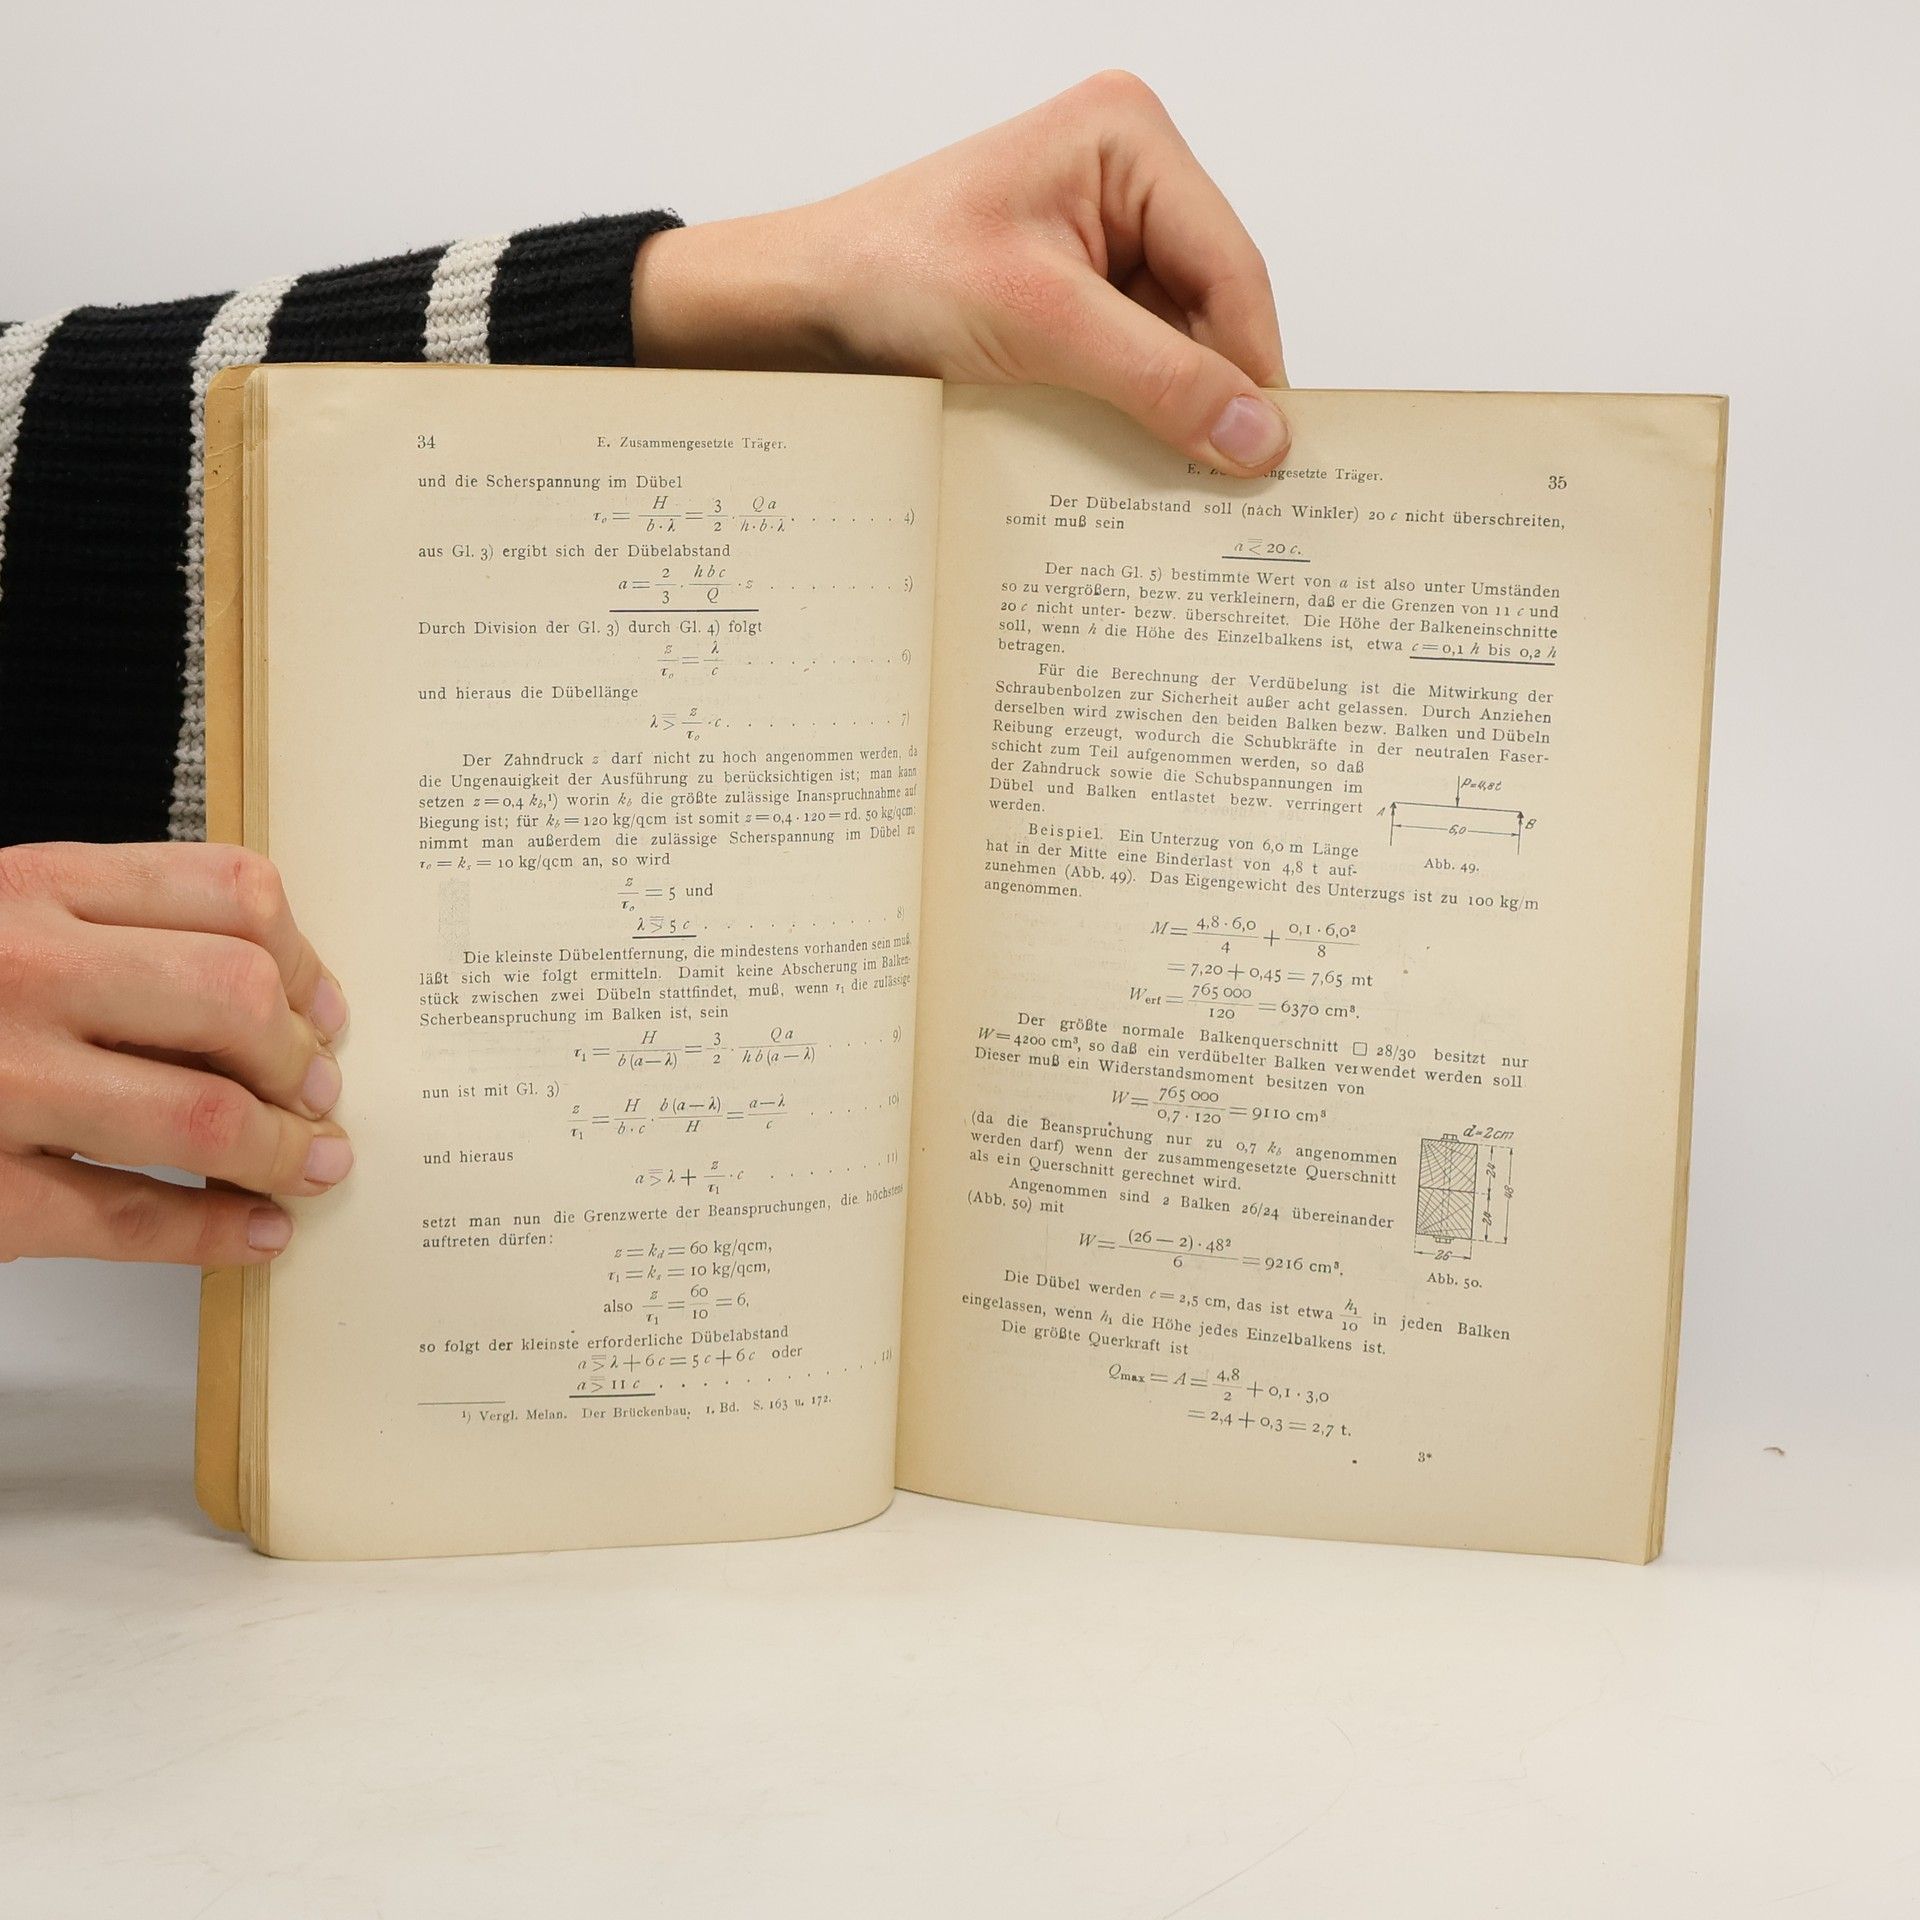 34
E. Zusammengesetzte Träger.
und die Scherspannung im Dübel
τₒ = H / (b · λ) = 3/2 · Q a / (h · b · λ) . . . . . . 4)
aus Gl. 3) ergibt sich der Dübelabstand
a = 2/3 · h b c / Q · z . . . . . . . 5)
Durch Division der Gl. 3) durch Gl. 4) folgt
z / τₒ = λ / c . . . . . . . . 6)
und hieraus die Dübellänge
λ ≧ z / τₒ · c . . . . . . . . 7)
Der Zahndruck z darf nicht zu hoch angenommen werden, da
die Ungenauigkeit der Ausführung zu berücksichtigen ist; man kann
setzen z = 0,4 k_b,¹) worin k_b die größte zulässige Inanspruchnahme auf
Biegung ist; für k_b = 120 kg/qcm ist somit z = 0,4 · 120 = rd. 50 kg/qcm;
nimmt man außerdem die zulässige Scherspannung im Dübel zu
τₒ = k_s = 10 kg/qcm an, so wird
z / τₒ = 5 und
λ ≧ 5 c . . . . . . . . 8)
Die kleinste Dübelentfernung, die mindestens vorhanden sein muß,
läßt sich wie folgt ermitteln. Damit keine Abscherung im Balken-
stück zwischen zwei Dübeln stattfindet, muß, wenn τ₁ die zulässige
Scherbeanspruchung im Balken ist, sein
τ₁ = H / (b (a — λ)) = 3/2 · Q a / (h b (a — λ)) . . . . 9)
nun ist mit Gl. 3)
z / τ₁ = H / (b · c) · b (a — λ) / H = (a — λ) / c . . . . . 10)
und hieraus
a ≧ λ + z / τ₁ · c . . . . . . 11)
setzt man nun die Grenzwerte der Beanspruchungen, die höchstens
auftreten dürfen:
z = k_d = 60 kg/qcm,
τ₁ = k_s = 10 kg/qcm,
also z / τ₁ = 60 / 10 = 6,
so folgt der kleinste erforderliche Dübelabstand
a ≧ λ + 6 c = 5 c + 6 c oder
a ≧ 11 c . . . . . . . . . . 12)
¹) Vergl. Melan. Der Brückenbau, 1. Bd. S. 163 u. 172.
E. ngesetzte Träger.
35
Der Dübelabstand soll (nach Winkler) 20 c nicht überschreiten,
somit muß sein
a ≦ 20 c.
Der nach Gl. 5) bestimmte Wert von a ist also unter Umständen
so zu vergrößern, bezw. zu verkleinern, daß er die Grenzen von 11 c und
20 c nicht unter- bezw. überschreitet. Die Höhe der Balkeneinschnitte
soll, wenn h die Höhe des Einzelbalkens ist, etwa c = 0,1 h bis 0,2 h
betragen.
Für die Berechnung der Verdübelung ist die Mitwirkung der
Schraubenbolzen zur Sicherheit außer acht gelassen. Durch Anziehen
derselben wird zwischen den beiden Balken bezw. Balken und Dübeln
Reibung erzeugt, wodurch die Schubkräfte in der neutralen Faser-
schicht zum Teil aufgenommen werden, so daß
der Zahndruck sowie die Schubspannungen im
Dübel und Balken entlastet bezw. verringert
werden.
P=4,8t
A
B
6,0
Abb. 49.
Beispiel. Ein Unterzug von 6,0 m Länge
hat in der Mitte eine Binderlast von 4,8 t auf-
zunehmen (Abb. 49). Das Eigengewicht des Unterzugs ist zu 100 kg/m
angenommen.
M = 4,8 · 6,0 / 4 + 0,1 · 6,0² / 8
= 7,20 + 0,45 = 7,65 mt
W_erf = 765 000 / 120 = 6370 cm³.
Der größte normale Balkenquerschnitt □ 28/30 besitzt nur
W = 4200 cm³, so daß ein verdübelter Balken verwendet werden soll
Dieser muß ein Widerstandsmoment besitzen von
W = 765 000 / (0,7 · 120) = 9110 cm³
(da die Beanspruchung nur zu 0,7 k_b angenommen
werden darf) wenn der zusammengesetzte Querschnitt
als ein Querschnitt gerechnet wird.
Angenommen sind 2 Balken 26/24 übereinander
(Abb. 50) mit
W = (26 — 2) · 48² / 6 = 9216 cm³.
d=2cm
24
24
48
26
Abb. 50.
Die Dübel werden c = 2,5 cm, das ist etwa h₁ / 10 in jeden Balken
eingelassen, wenn h₁ die Höhe jedes Einzelbalkens ist.
Die größte Querkraft ist
Q_max = A = 4,8 / 2 + 0,1 · 3,0
= 2,4 + 0,3 = 2,7 t.
3*